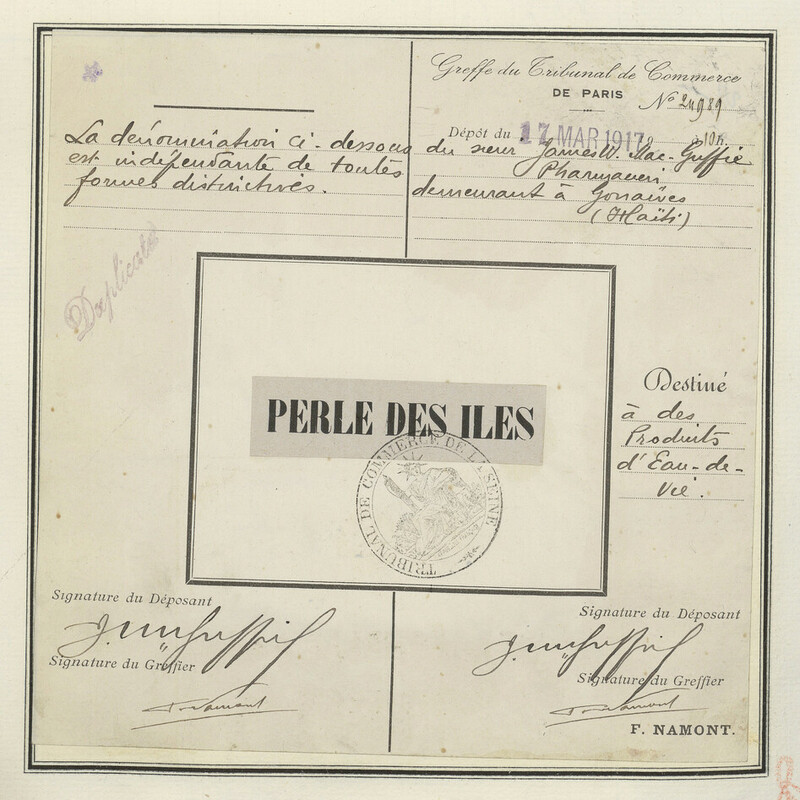 Greffe du Tribunal de Commerce
DE PARIS
No 24989
Dépôt du 17 MAR 1917 à 10h.
du sieur James W. Mac-Guffie
demeurant à Gonaïves
(Haïti)
La dénomination ci-dessous
est indépendante de toutes
formes distinctives.
Duplicata
PERLE DES ILES
TRIBUNAL DE COMMERCE DE LA SEINE
Destiné
à des
Produits
d'Eau-de-
Vie.
Signature du Déposant
Signature du Greffier
F. Namont
Signature du Déposant
Signature du Greffier
F. Namont
F. NAMONT.